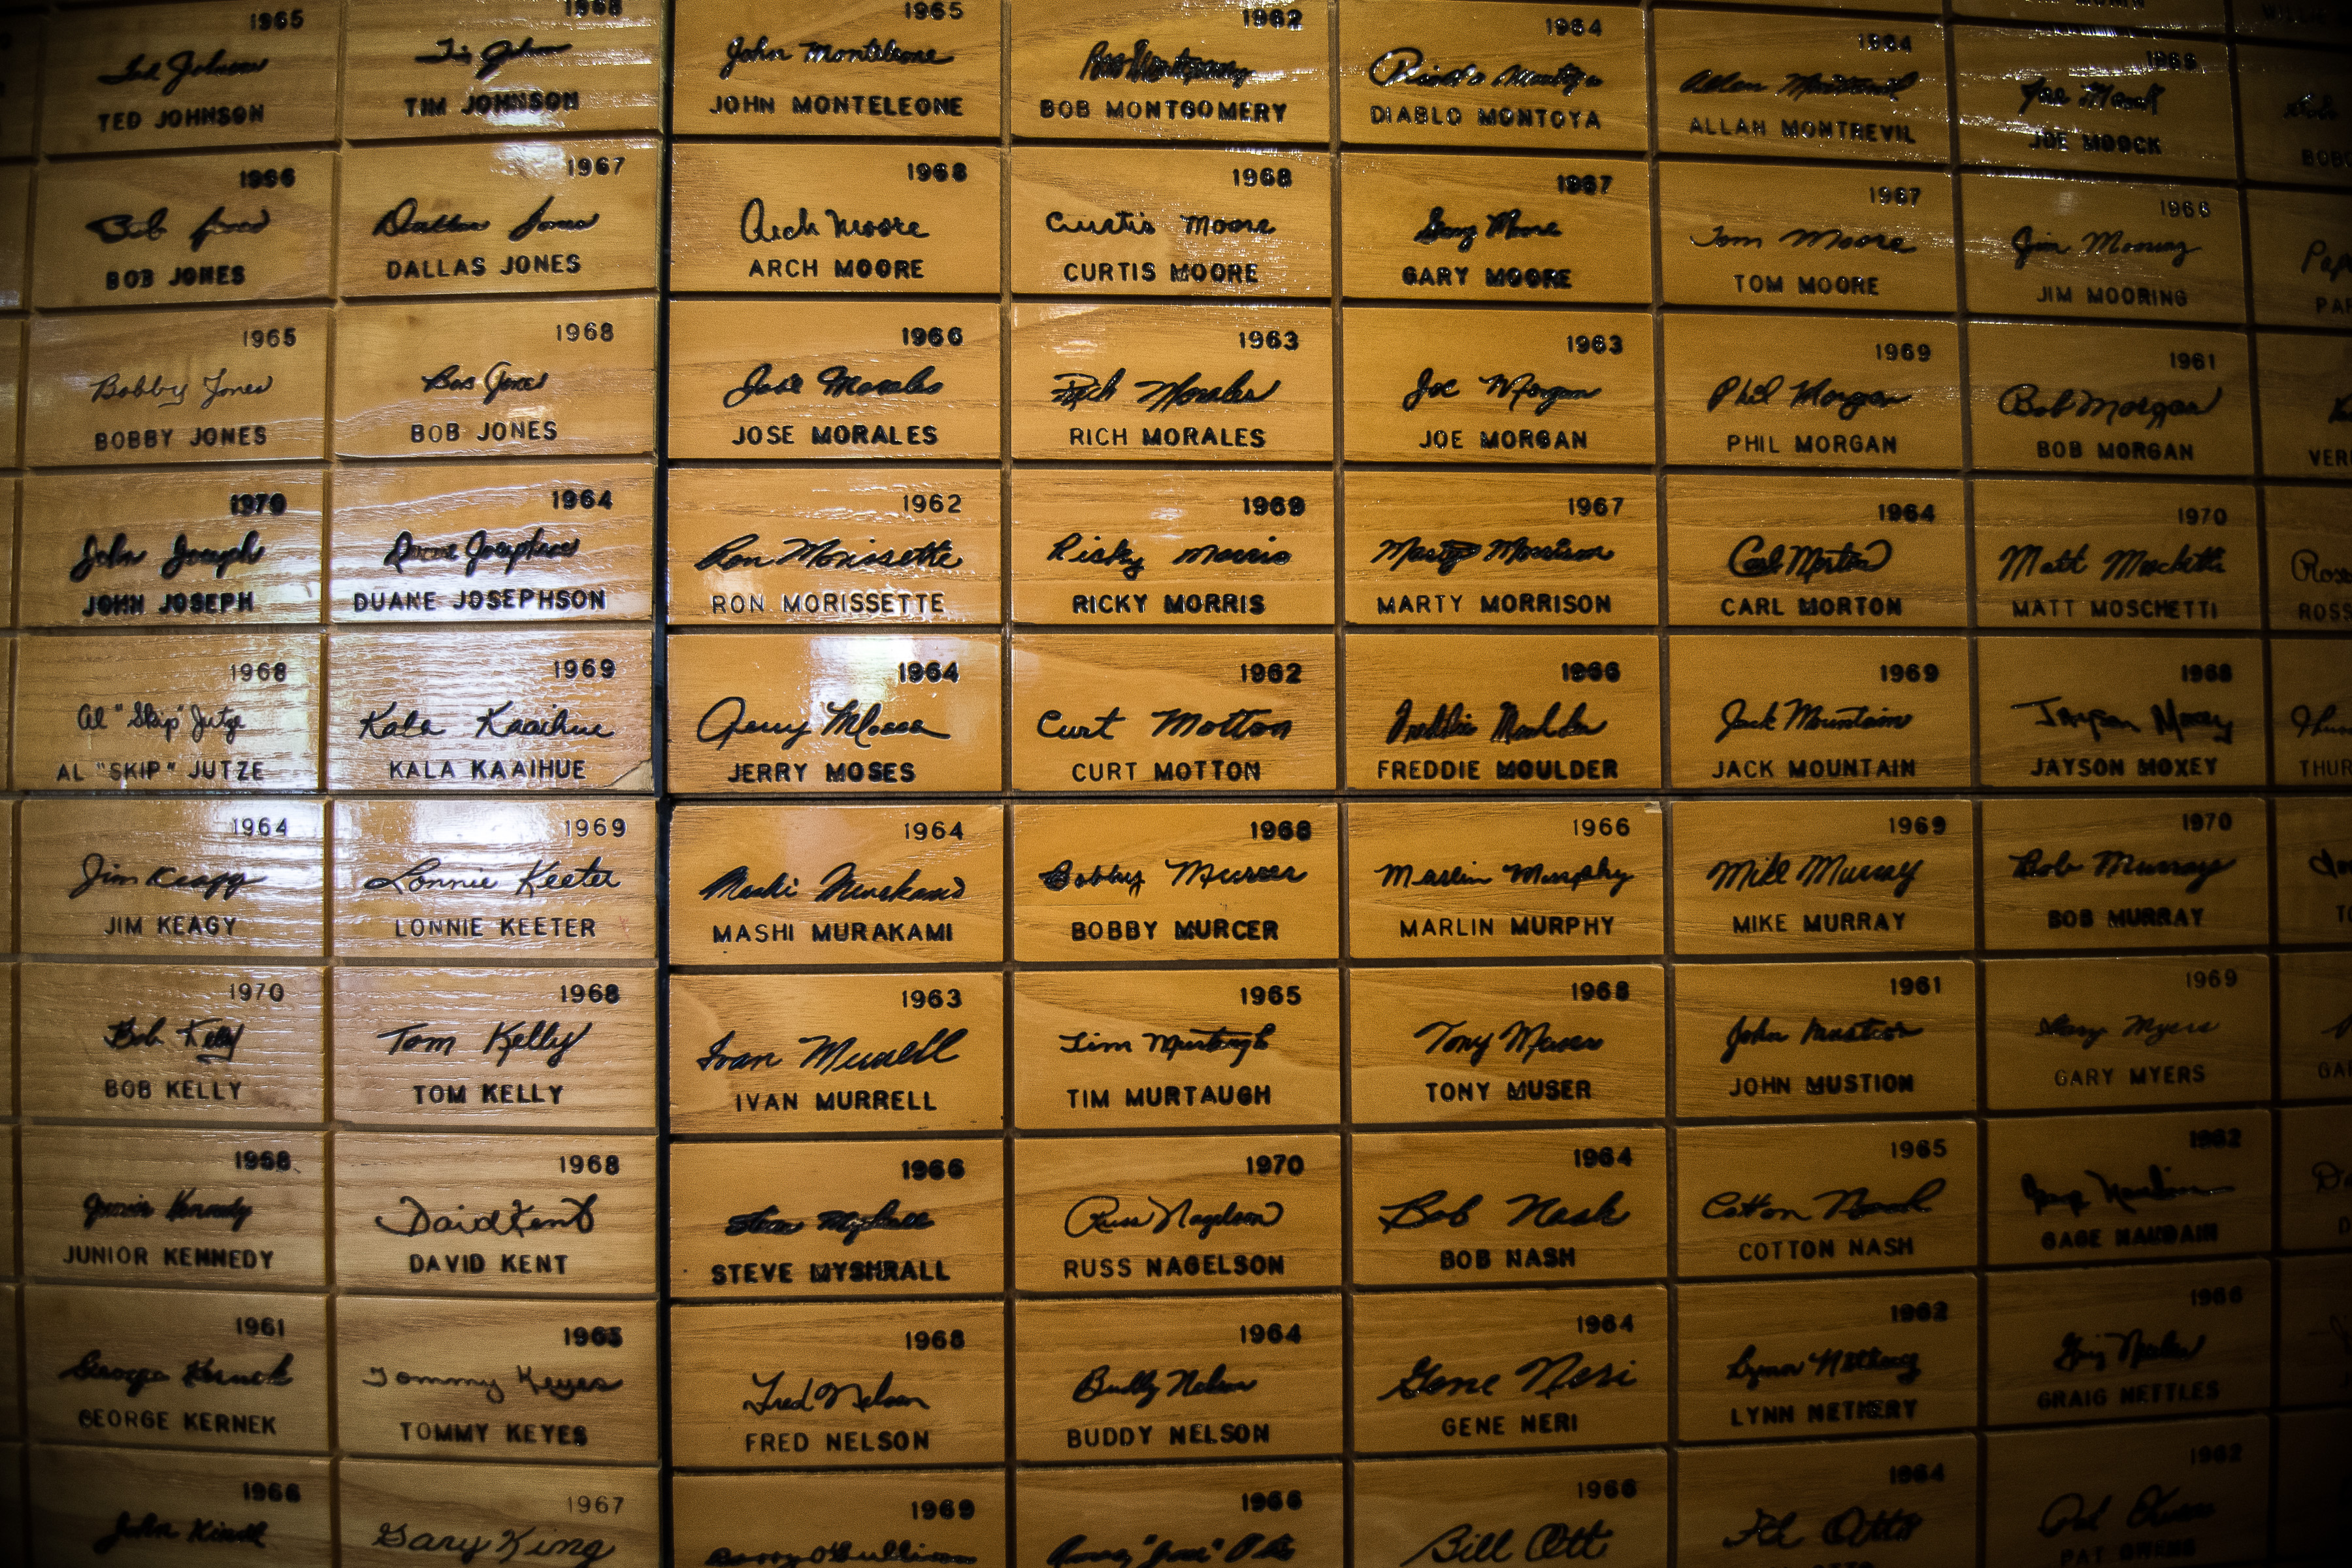 1965
Ted Johnson
TED JOHNSON
1968
Tim Johnson
TIM JOHNSON
1965
John Monteleone
JOHN MONTELEONE
1962
Bob Montgomery
BOB MONTGOMERY
1964
Diablo Montoya
DIABLO MONTOYA
1964
Allan Montrevil
ALLAN MONTREVIL
Joe Moock
JOE MOOCK
1966
Bob Jones
BOB JONES
1967
Dallas Jones
DALLAS JONES
1968
Arch Moore
ARCH MOORE
1968
Curtis Moore
CURTIS MOORE
1967
Gary Moore
GARY MOORE
1967
Tom Moore
TOM MOORE
1966
Jim Mooring
JIM MOORING
1965
Bobby Jones
BOBBY JONES
1968
Bob Jones
BOB JONES
1966
Jose Morales
JOSE MORALES
1963
Rich Morales
RICH MORALES
1963
Joe Morgan
JOE MORGAN
1969
Phil Morgan
PHIL MORGAN
1961
Bob Morgan
BOB MORGAN
1970
John Joseph
JOHN JOSEPH
1964
Duane Josephson
DUANE JOSEPHSON
1962
Ron Morissette
RON MORISSETTE
1969
Ricky Morris
RICKY MORRIS
1967
Marty Morrison
MARTY MORRISON
1964
Carl Morton
CARL MORTON
1970
Matt Moschetti
MATT MOSCHETTI
1968
Al "Skip" Jutze
AL "SKIP" JUTZE
1969
Kala Kaaihue
KALA KAAIHUE
1964
Jerry Moses
JERRY MOSES
1962
Curt Motton
CURT MOTTON
1966
Freddie Moulder
FREDDIE MOULDER
1969
Jack Mountain
JACK MOUNTAIN
1968
Jayson Moxey
JAYSON MOXEY
1964
Jim Keagy
JIM KEAGY
1969
Lonnie Keeter
LONNIE KEETER
1964
Mashi Murakami
MASHI MURAKAMI
1968
Bobby Murcer
BOBBY MURCER
1966
Marlin Murphy
MARLIN MURPHY
1969
Mike Murray
MIKE MURRAY
1970
Bob Murray
BOB MURRAY
1970
Bob Kelly
BOB KELLY
1968
Tom Kelly
TOM KELLY
1963
Ivan Murrell
IVAN MURRELL
1965
Tim Murtaugh
TIM MURTAUGH
1968
Tony Muser
TONY MUSER
1961
John Mustion
JOHN MUSTION
1969
Gary Myers
GARY MYERS
1968
Junior Kennedy
JUNIOR KENNEDY
1968
David Kent
DAVID KENT
1966
Steve Myshrall
STEVE MYSHRALL
1970
Russ Nagelson
RUSS NAGELSON
1964
Bob Nash
BOB NASH
1965
Cotton Nash
COTTON NASH
1962
Gage Naudain
GAGE NAUDAIN
1961
George Kernek
GEORGE KERNEK
1965
Tommy Keyes
TOMMY KEYES
1968
Fred Nelson
FRED NELSON
1964
Buddy Nelson
BUDDY NELSON
1964
Gene Neri
GENE NERI
1962
Lynn Nethery
LYNN NETHERY
1966
Graig Nettles
GRAIG NETTLES
1966
John Kindl
1967
Gary King
1969
O'Sullivan
1966
1966
Bill Ott
1964
Ed Otto
1962
Pat Owens
PAT OWENS